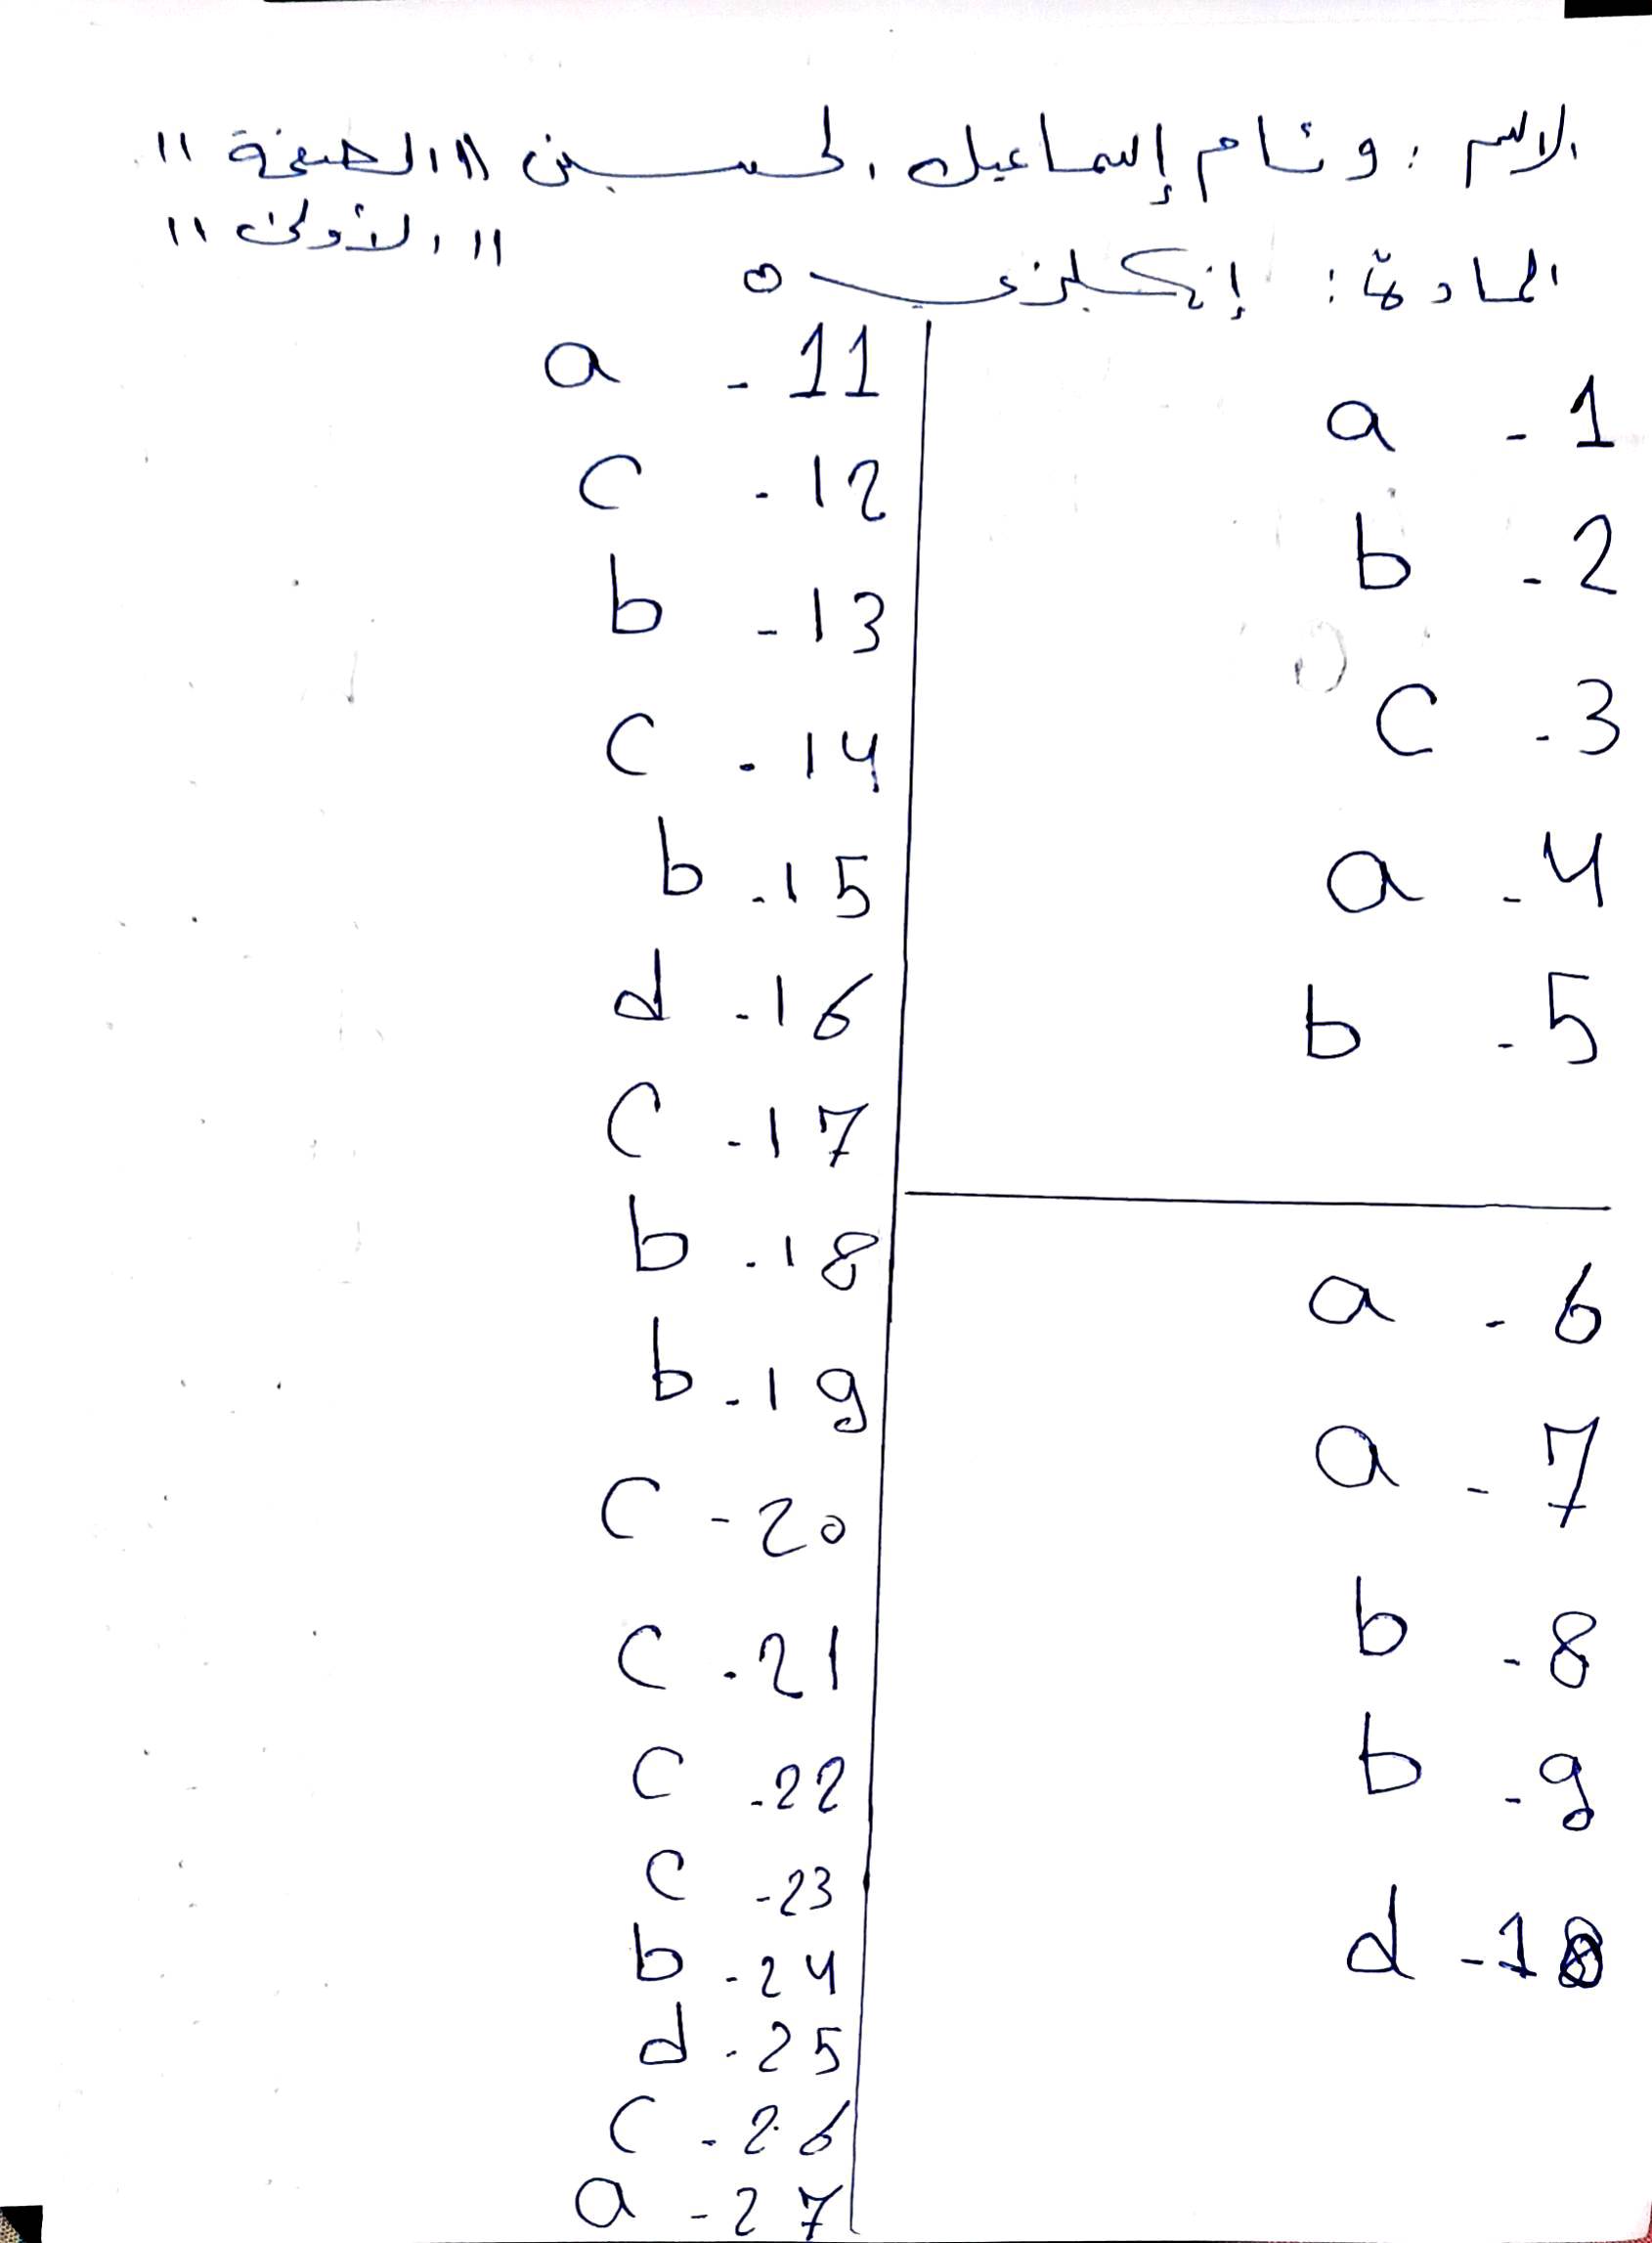 الاسم : وئام إسماعيل الحسين "الصفحة"
"الأولى"
المادة : إنكليزي
1 - a
2 - b
3 - c
4 - a
5 - b
6 - a
7 - a
8 - b
9 - b
10 - d
11 - a
12 - c
13 - b
14 - c
15 - b
16 - d
17 - c
18 - b
19 - b
20 - c
21 - c
22 - c
23 - c
24 - b
25 - d
26 - c
27 - a